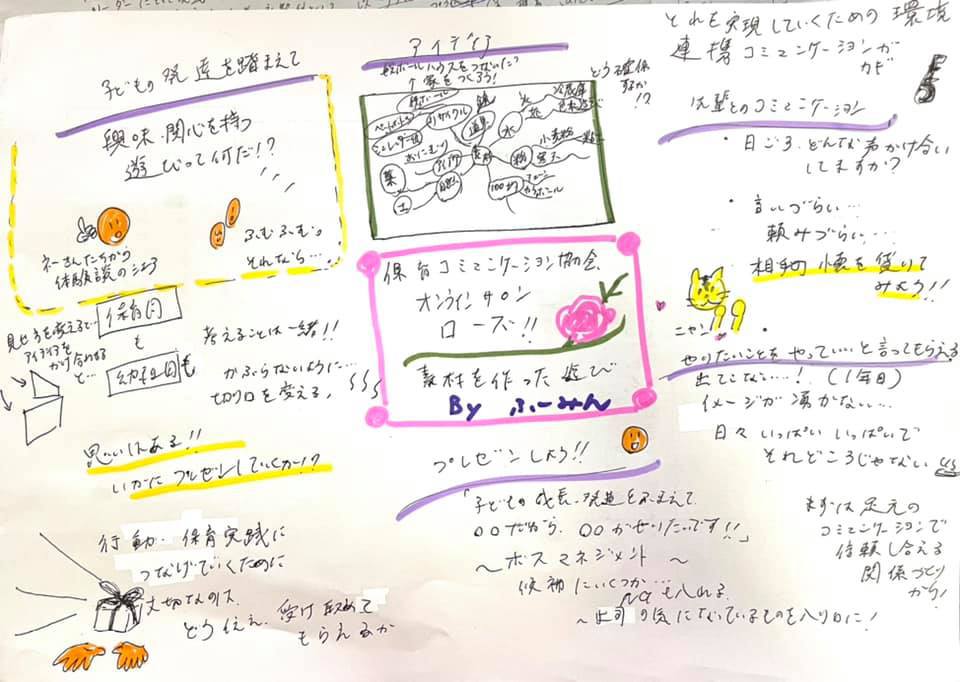 子どもの発達を踏まえて
興味・関心を持つ
遊びって何だ!?
ネーさんたちから
体験談のシェア
ふむふむ。
それなら…。
アイディア
段ボールハウスをつないだ?
↑家をつくろう!
どう確保
するか
!?
段ボール
ペットボトル
リサイクル
シュレッダー
道具
素材
水
氷
色水
粉
小麦粉
100均
自然
葉
土
保育コミュニケーション協会
オンラインサロン
ローズ!!
素材を作った遊び
By ふーみん
それを実現していくための環境
連携コミュニケーションが
カギ
先輩とのコミュニケーション
・日ごろ、どんな声かけ合い
してますか?
・言いづらい…
頼みづらい…
相手の懐を借りて
みよう!!
ニャン
・やりたいことをやっていいと言ってもらえる
出てこない…!(1年目)
イメージが湧かない…
日々いっぱいいっぱいで
それどころじゃない
まずは足元の
コミュニケーションで
信頼し合える
関係づくり
から!
見せ方を変えるで…
アイディアを
かけ合わせる
と…
保育園
も
幼稚園も
考えることは一緒!!
かぶらないように…
切り口を変える。
思いはある!!
いかにプレゼンしていくか!?
行動・保育実践に
つなげていくために
大切なのは、
どう伝え、受け取めて
もらえるか
プレゼンしよう!!
「子どもの成長・発達をふまえて
○○だから、○○がせりたいです!!」
〜ボスマネジメント〜
候補にいくつか…
NGも入れる
〜上司の気になっているものを入り口に!